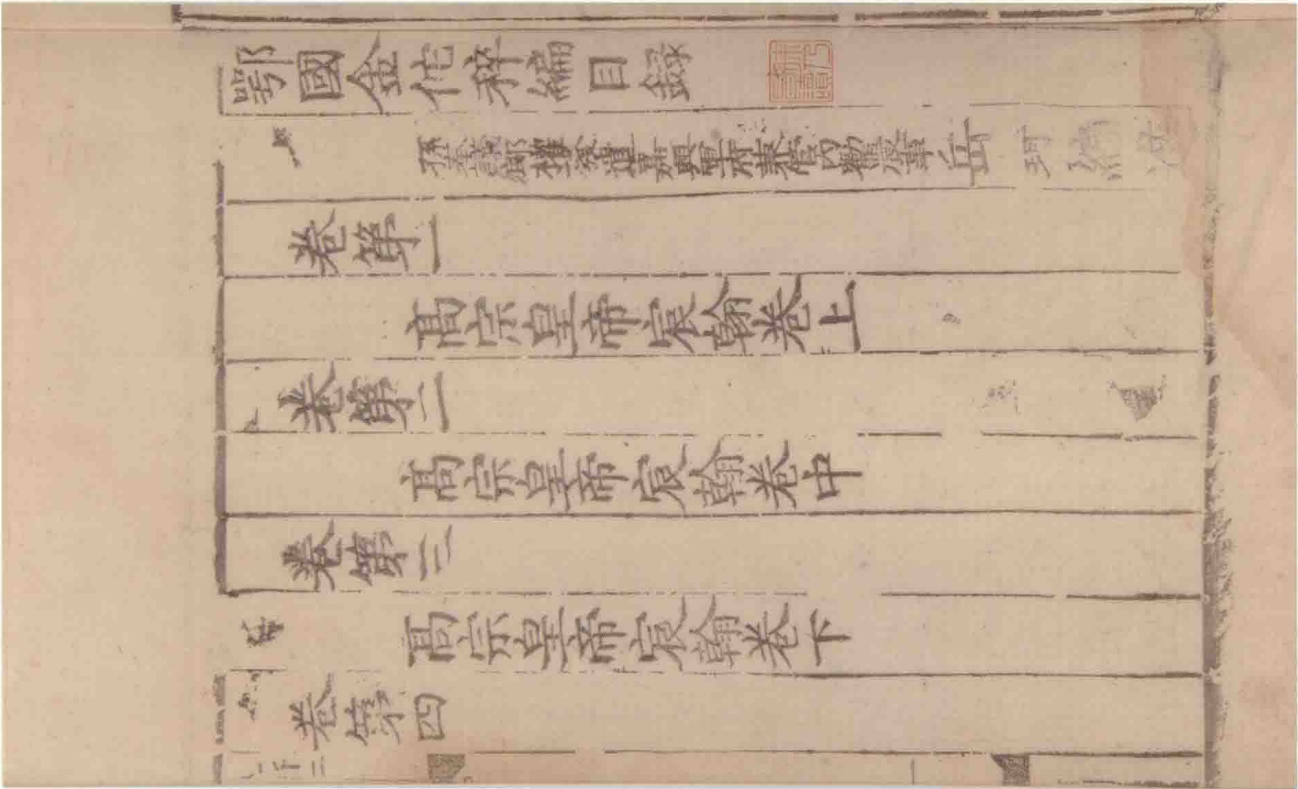 鄂國金佗稡編目録
孫奉議郎權發遣嘉興軍府兼管內勸農事岳珂編進
卷第一
高宗皇帝宸翰卷上
卷第二
高宗皇帝宸翰卷中
卷第三
高宗皇帝宸翰卷下
卷第四